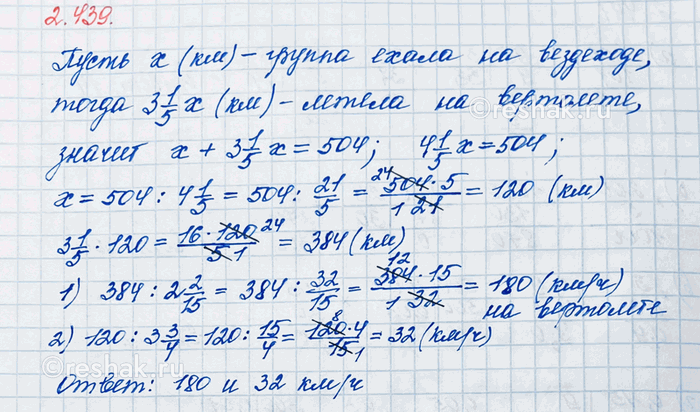 2.439.
Пусть x (км) – группа ехала на вездеходе,
тогда 3 1/5 x (км) – летела на вертолете,
значит x + 3 1/5 x = 504; 4 1/5 x = 504;
x = 504 : 4 1/5 = 504 : 21/5 = 24 504 · 5 / 1 21 = 120 (км)
3 1/5 · 120 = 16 · 120 24 / 5 1 = 384 (км)
1) 384 : 2 2/15 = 384 : 32/15 = 12 384 · 15 / 1 32 = 180 (км/ч)
на вертолете
2) 120 : 3 3/4 = 120 : 15/4 = 8 120 · 4 / 15 1 = 32 (км/ч)
Ответ: 180 и 32 км/ч
reshak.ru